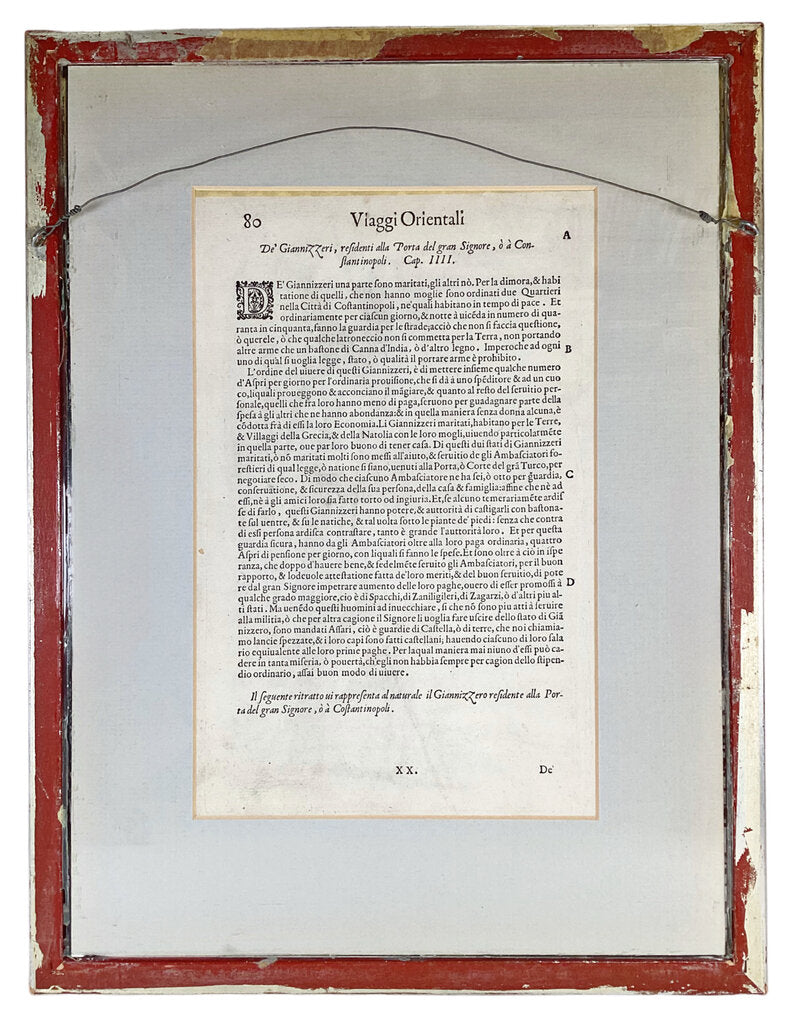 80 Viaggi Orientali
A
De' Giannizzeri, reſidenti alla Porta del gran Signore, ò à Con-
ſtantinopoli. Cap. IIII.
DE' Giannizzeri una parte ſono maritati, gli altri nò. Per la dimora, & habi
tatione di quelli, che non hanno moglie ſono ordinati due Quartieri
nella Città di Coſtantinopoli, ne'quali habitano in tempo di pace. Et
ordinariamente per ciaſcun giorno, & notte à uicēda in numero di qua-
ranta in cinquanta, fanno la guardia per le ſtrade; acciò che non ſi faccia queſtione,
ò querele, ò che qualche latroneccio non ſi commetta per la Terra, non portando
altre arme che un baſtone di Canna d'India, ò d'altro legno. Imperoche ad ogni B
uno di qual ſi uoglia legge, ſtato, ò qualità il portare arme è prohibito.
L'ordine del uiuere di queſti Giannizzeri, è di mettere inſieme qualche numero
d'Aſpri per giorno per l'ordinaria prouiſione, che ſi dà à uno ſpēditore & ad un cuo
co, liquali proueggono & acconciano il māgiare, & quanto al reſto del ſeruitio per-
ſonale, quelli che fra loro hanno meno di paga, ſeruono per guadagnare parte della
ſpeſa à gli altri che ne hanno abondanza: & in quella maniera ſenza donna alcuna, è
cōdotta frà di eſſi la loro Economia. Li Giannizzeri maritati, habitano per le Terre,
& Villaggi della Grecia, & della Natolia con le loro mogli, uiuendo particolarmēte
in quella parte, oue par loro buono di tener caſa. Di queſti dui ſtati di Giannizzeri
maritati, ò nō maritati molti ſono meſſi all'aiuto, & ſeruitio de gli Ambaſciatori fo-
reſtieri di qual legge, ò natione ſi ſiano, uenuti alla Porta, ò Corte del grā Turco, per
negotiare ſeco. Di modo che ciaſcuno Ambaſciatore ne ha ſei, ò otto per guardia, C
conſeruatione, & ſicurezza della ſua perſona, della caſa & famiglia: affine che nè ad
eſſi, nè à gli amici loro ſia fatto torto od ingiuria. Et, ſe alcuno temerariamēte ardiſ
ſe di farlo, queſti Giannizzeri hanno potere, & auttorità di caſtigarli con baſtona-
te ſul uentre, & ſu le natiche, & tal uolta ſotto le piante de' piedi: ſenza che contra
di eſſi perſona ardiſca contraſtare, tanto è grande l'auttorità loro. Et per queſta
guardia ſicura, hanno da gli Ambaſciatori oltre alla loro paga ordinaria, quattro
Aſpri di penſione per giorno, con liquali ſi fanno le ſpeſe. Et ſono oltre à ciò in iſpe
ranza, che doppo d'hauere bene, & fedelmēte ſeruito gli Ambaſciatori, per il buon
rapporto, & lodeuole atteſtatione fatta de'loro meriti, & del buon ſeruitio, di pote
re dal gran Signore impetrare aumento delle paghe, ouero di eſſer promoſſi à D
qualche grado maggiore, cio è di Spacchi, di Zaniligileri, di Zagarzi, ò d'altri piu al-
ti ſtati. Ma uenēdo queſti huomini ad inuecchiare, ſi che nō ſono piu atti à ſeruire
alla militia, ò che per altra cagione il Signore li uoglia fare uſcire dello ſtato di Giā
nizzero, ſono mandati Aſſari, ciò è guardie di Caſtella, ò di terre, che noi chiamia-
mo lancie ſpezzate, & i loro capi ſono fatti caſtellani; hauendo ciaſcuno di loro ſala
rio equiualente alle loro prime paghe. Per laqual maniera mai niuno d'eſſi può ca-
dere in tanta miſeria, ò pouertà, ch'egli non habbia ſempre per cagion dello ſtipen-
dio ordinario, aſſai buon modo di uiuere.
Il ſeguente ritratto ui rappreſenta al naturale il Giannizzero reſidente alla Por-
ta del gran Signore, ò à Coſtantinopoli.
XX. De'